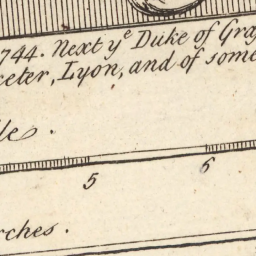 1744. Next yᵉ Duke of Gra
ceter, Lyon, and of some
le.
5 6
rches.